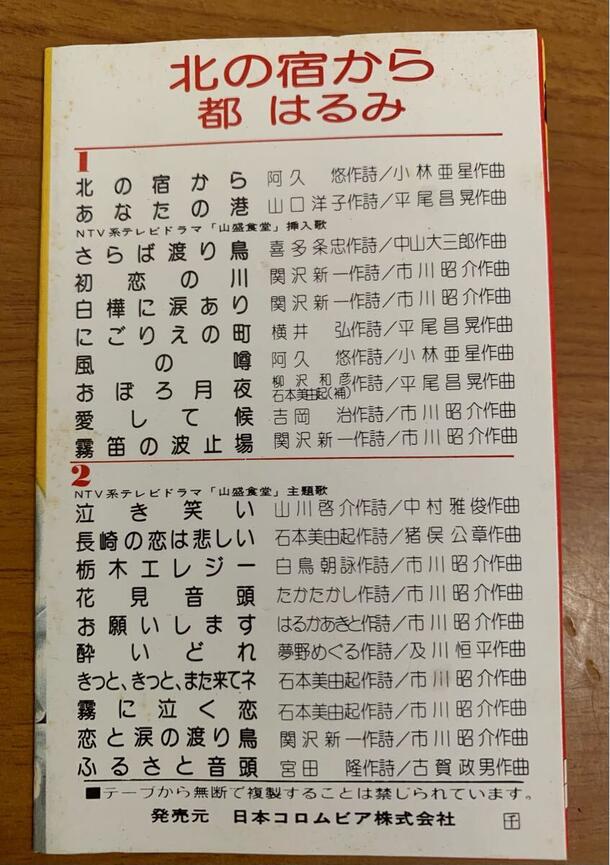 北の宿から
都 はるみ
1
北の宿から 阿久 悠作詩/小林亜星作曲
あなたの港 山口洋子作詩/平尾昌晃作曲
NTV系テレビドラマ「山盛食堂」挿入歌
さらば渡り鳥 喜多条忠作詩/中山大三郎作曲
初恋の川 関沢新一作詩/市川昭介作曲
白樺に涙あり 関沢新一作詩/市川昭介作曲
にごりえの町 横井 弘作詩/平尾昌晃作曲
風の噂 阿久 悠作詩/小林亜星作曲
おぼろ月夜 柳沢和彦 石本美由起(補)作詩/平尾昌晃作曲
愛して候 吉岡 治作詩/市川昭介作曲
霧笛の波止場 関沢新一作詩/市川昭介作曲
2
NTV系テレビドラマ「山盛食堂」主題歌
泣き笑い 山川啓介作詩/中村雅俊作曲
長崎の恋は悲しい 石本美由起作詩/猪俣公章作曲
栃木エレジー 白鳥朝詠作詩/市川昭介作曲
花見音頭 たかたかし作詩/市川昭介作曲
お願いします はるかあきと作詩/市川昭介作曲
酔いどれ 夢野めぐる作詩/及川恒平作曲
きっと、きっと、また来てネ 石本美由起作詩/市川昭介作曲
霧に泣く恋 石本美由起作詩/市川昭介作曲
恋と涙の渡り鳥 関沢新一作詩/市川昭介作曲
ふるさと音頭 宮田 隆作詩/古賀政男作曲
■テープから無断で複製することは禁じられています。
発売元 日本コロムビア株式会社 千